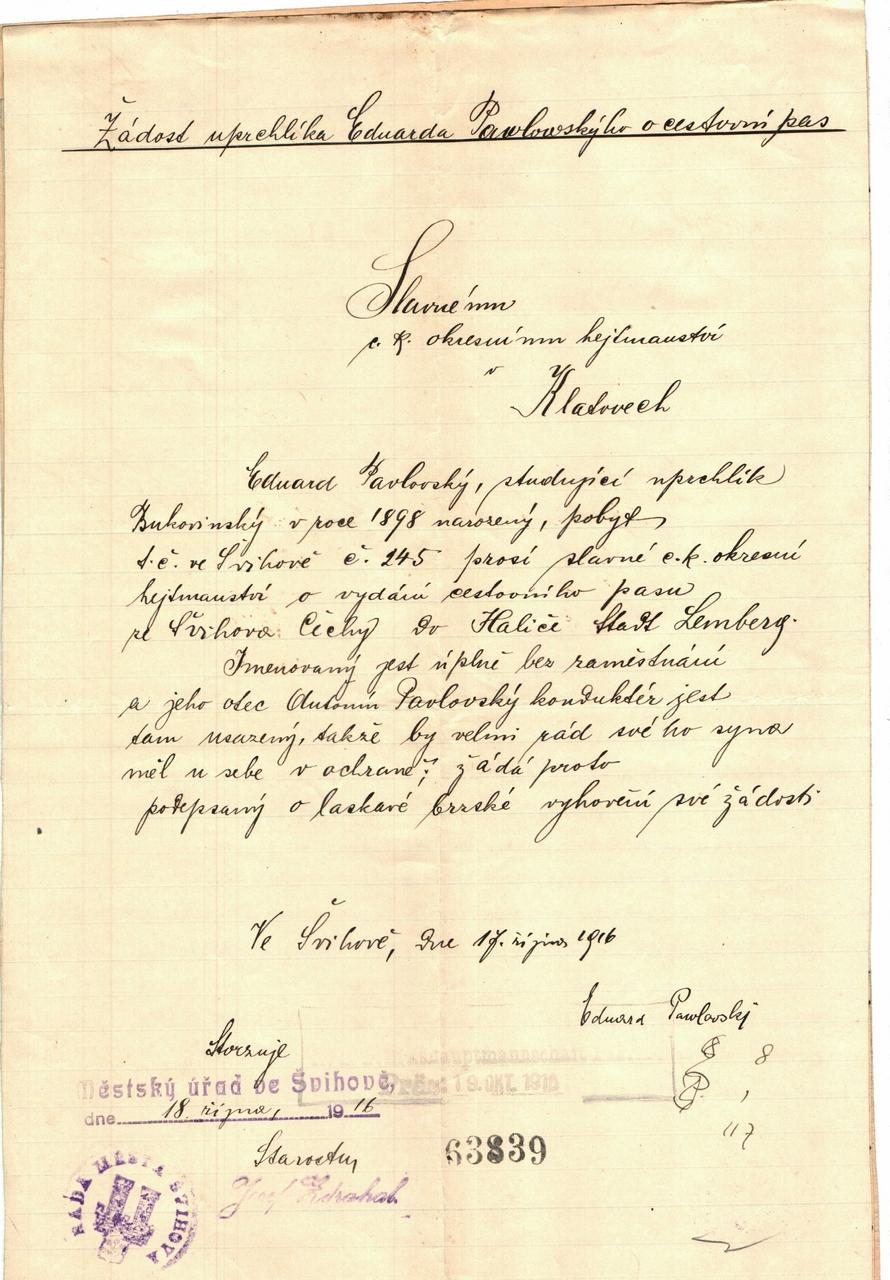 Žádost uprchlíka Eduarda Pawlowskýho o cestovní pas
Slavnému
c. k. okresnímu hejtmanství
v
Klatovech
Eduard Pavlovský, studující uprchlík
Bukovinský v roce 1898 narozený, pobyt
t. č. ve Švihově č. 245 prosí slavné c. k. okresní
hejtmanství o vydání cestovního pasu
ze Švihova Čechy do Haliče Stadt Lemberg.
Jmenovaný jest úplně bez zaměstnání
a jeho otec Antonín Pavlovský konduktér jest
tam usazený, takže by velmi rád svého syna
měl u sebe v ochraně; žádá proto
podepsaný o laskavé brzské vyhovění své žádosti
Ve Švihově, dne 17. října 1916
Eduard Pawlovský
Stvrzuje
Městský úřad ve Švihově,
dne 18. října, 1916
hauptmannschaft
Präs. 19. OKT. 1916
8
117
63839
Starosta
Josef Zdrahal
RADA MĚSTA ŠVIHOVA